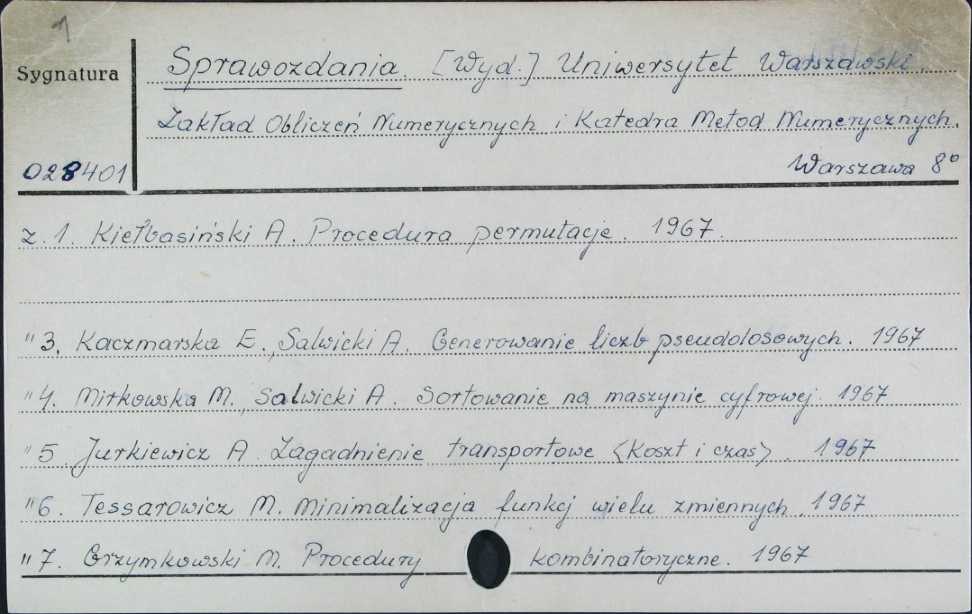 1
Sprawozdania. [Wyd.] Uniwersytet Warszawski.
Sygnatura
Zakład Obliczeń Numerycznych i Katedra Metod Numerycznych.
028401
Warszawa 8°
z. 1. Kiełbasiński A. Procedura permutacje. 1967.
"3. Kaczmarska E., Salwicki A. Generowanie liczb pseudolosowych. 1967
"4. Mirkowska M., Salwicki A. Sortowanie na maszynie cyfrowej. 1967
"5. Jurkiewicz A. Zagadnienie transportowe <Koszt i czas>. 1967
"6. Tessarowicz M. Minimalizacja funkcj wielu zmiennych. 1967
"7. Grzymkowski M. Procedury kombinatoryczne. 1967